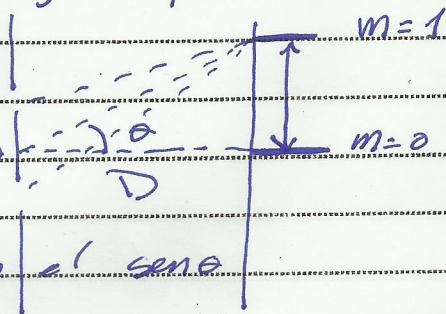 m = 1
θ
m = 0
D
e' senθ